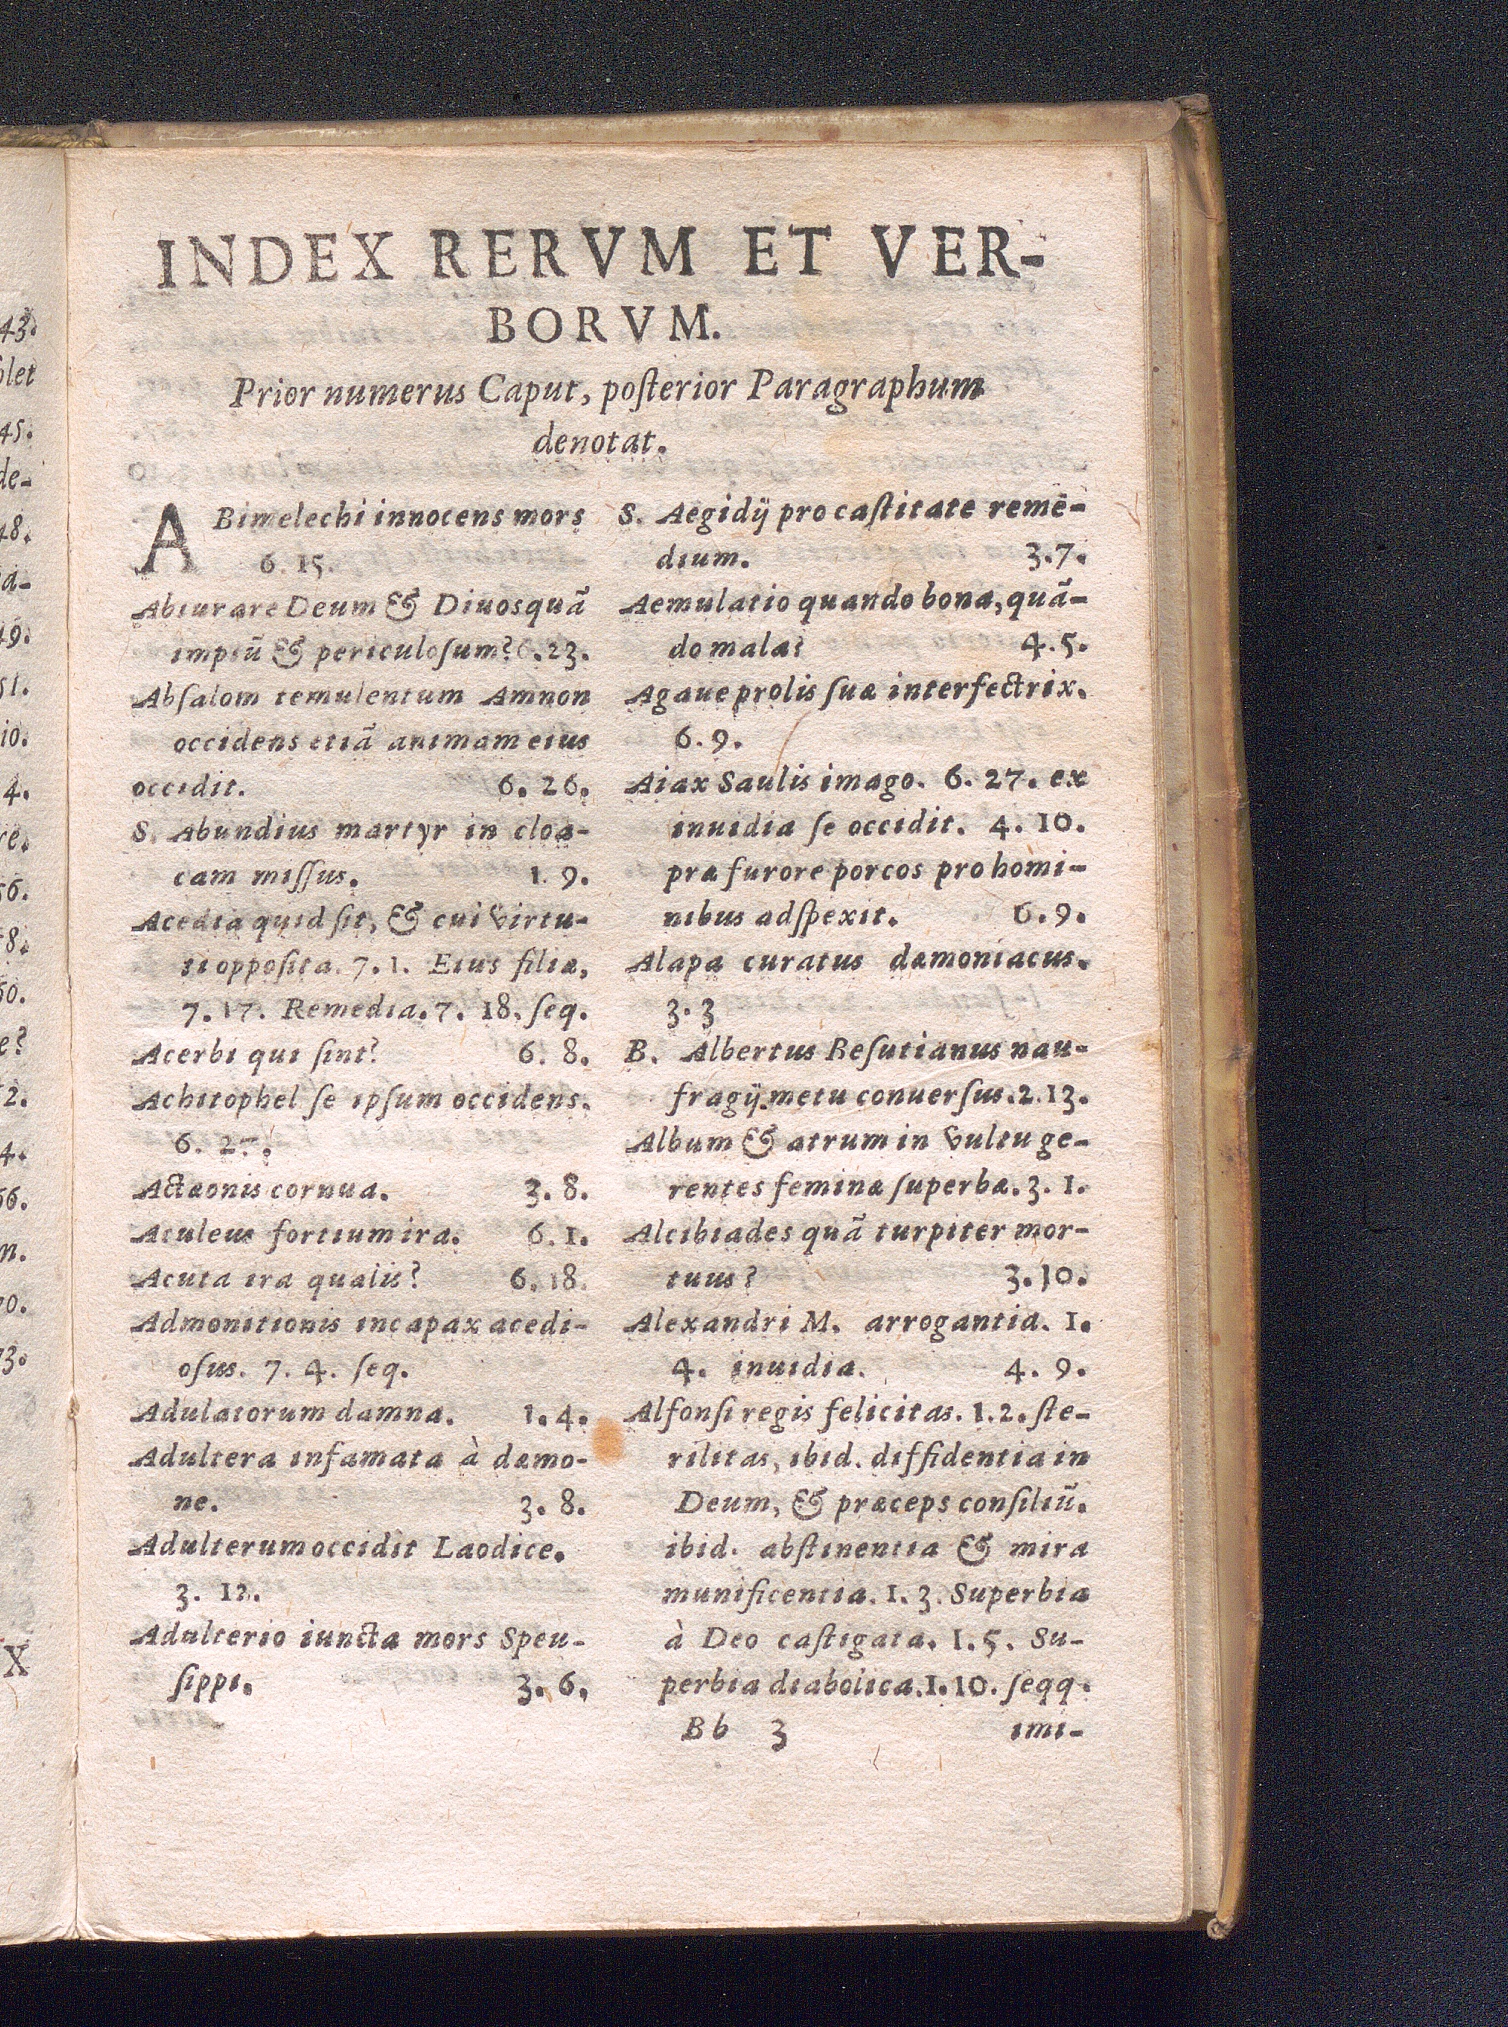 INDEX RERVM ET VER-
BORVM.
Prior numerus Caput, poſterior Paragraphum
denotat.
ABimelechi innocens mors
6. 15.
Abiurare Deum & Diuos quā
impiū & periculoſum? 6.23.
Abſalom temulentum Amnon
occidens etiā animam eius
occidit. 6. 26.
S. Abundius martyr in cloa-
cam miſſus. 1. 9.
Acedia quid ſit, & cui virtu-
ti oppoſita. 7. 1. Eius filiæ,
7. 17. Remedia. 7. 18. ſeq.
Acerbi qui ſint? 6. 8.
Achitophel ſe ipſum occidens.
6. 27.
Actæonis cornua. 3. 8.
Aculeus fortium ira. 6. 1.
Acuta ira qualis? 6. 18.
Admonitionis incapax acedi-
oſus. 7. 4. ſeq.
Adulatorum damna. 1. 4.
Adultera infamata à dæmo-
ne. 3. 8.
Adulterum occidit Laodice.
3. 12.
Adulterio iuncta mors Speu-
ſippi. 3. 6.
S. Aegidij pro caſtitate reme-
dium. 3.7.
Aemulatio quando bona, quā-
do mala? 4.5.
Agaue prolis ſuæ interfectrix.
6. 9.
Aiax Saulis imago. 6. 27. ex
inuidia ſe occidit. 4. 10.
præ furore porcos pro homi-
nibus adſpexit. 6. 9.
Alapa curatus dæmoniacus.
3. 3
B. Albertus Beſutianus nau-
fragij metu conuerſus. 2. 13.
Album & atrum in vultu ge-
rentes feminæ ſuperbæ. 3. 1.
Alcibiades quā turpiter mor-
tuus? 3. 10.
Alexandri M. arrogantia. 1.
4. inuidia. 4. 9.
Alfonſi regis felicitas. 1. 2. ſte-
rilitas, ibid. diffidentia in
Deum, & præceps conſiliū.
ibid. abſtinentia & mira
munificentia. 1. 3. Superbia
à Deo caſtigata. 1. 5. Su-
perbia diabolica. 1. 10. ſeqq.
Bb 3 imi-